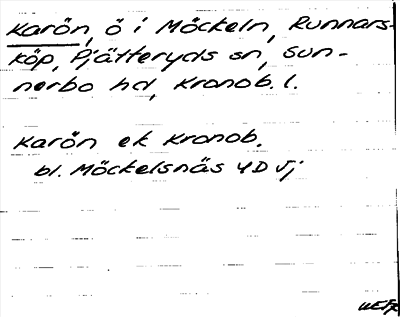 Karön, ö i Möckeln, Runnars-
köp, Pjätteryds sn, Sun-
nerbo hd, Kronob. l.
Karön ek Kronob.
bl. Möckelsnäs 4D vj